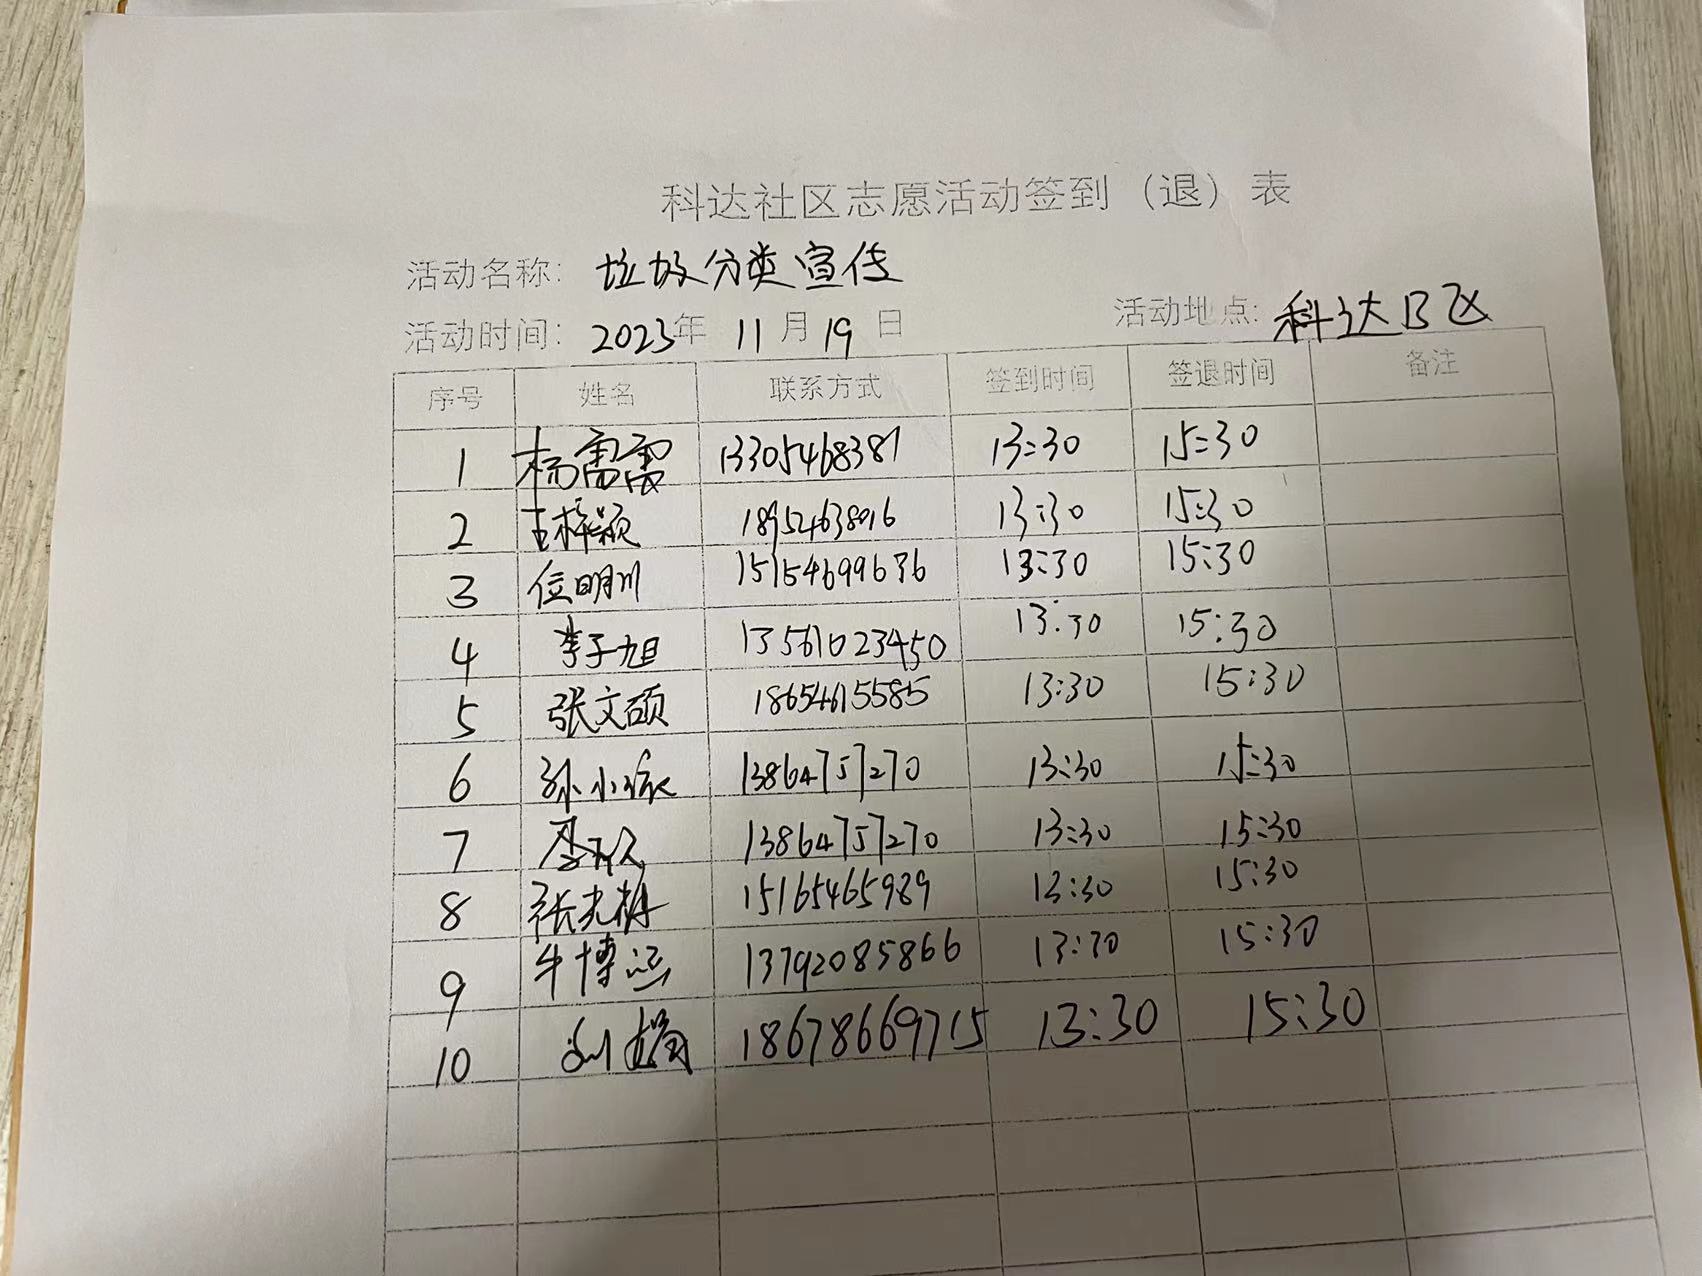 科达社区志愿活动签到（退）表
活动名称：垃圾分类宣传
活动时间：2023年 11月19日 活动地点：科达B区
序号 姓名 联系方式 签到时间 签退时间 备注
1 杨雷雷 13305468387 13:30 15:30
2 王梓颖 18954638016 13:30 15:30
3 位明川 15154699636 13:30 15:30
4 李子旭 13561023450 13:30 15:30
5 张文硕 18654615585 13:30 15:30
6 孙小 13864757270 13:30 15:30
7 13864757270 13:30 15:30
8 张 15165465989 13:30 15:30
9 牛博涵 13792085866 13:30 15:30
10 刘娟 18678669715 13:30 15:30